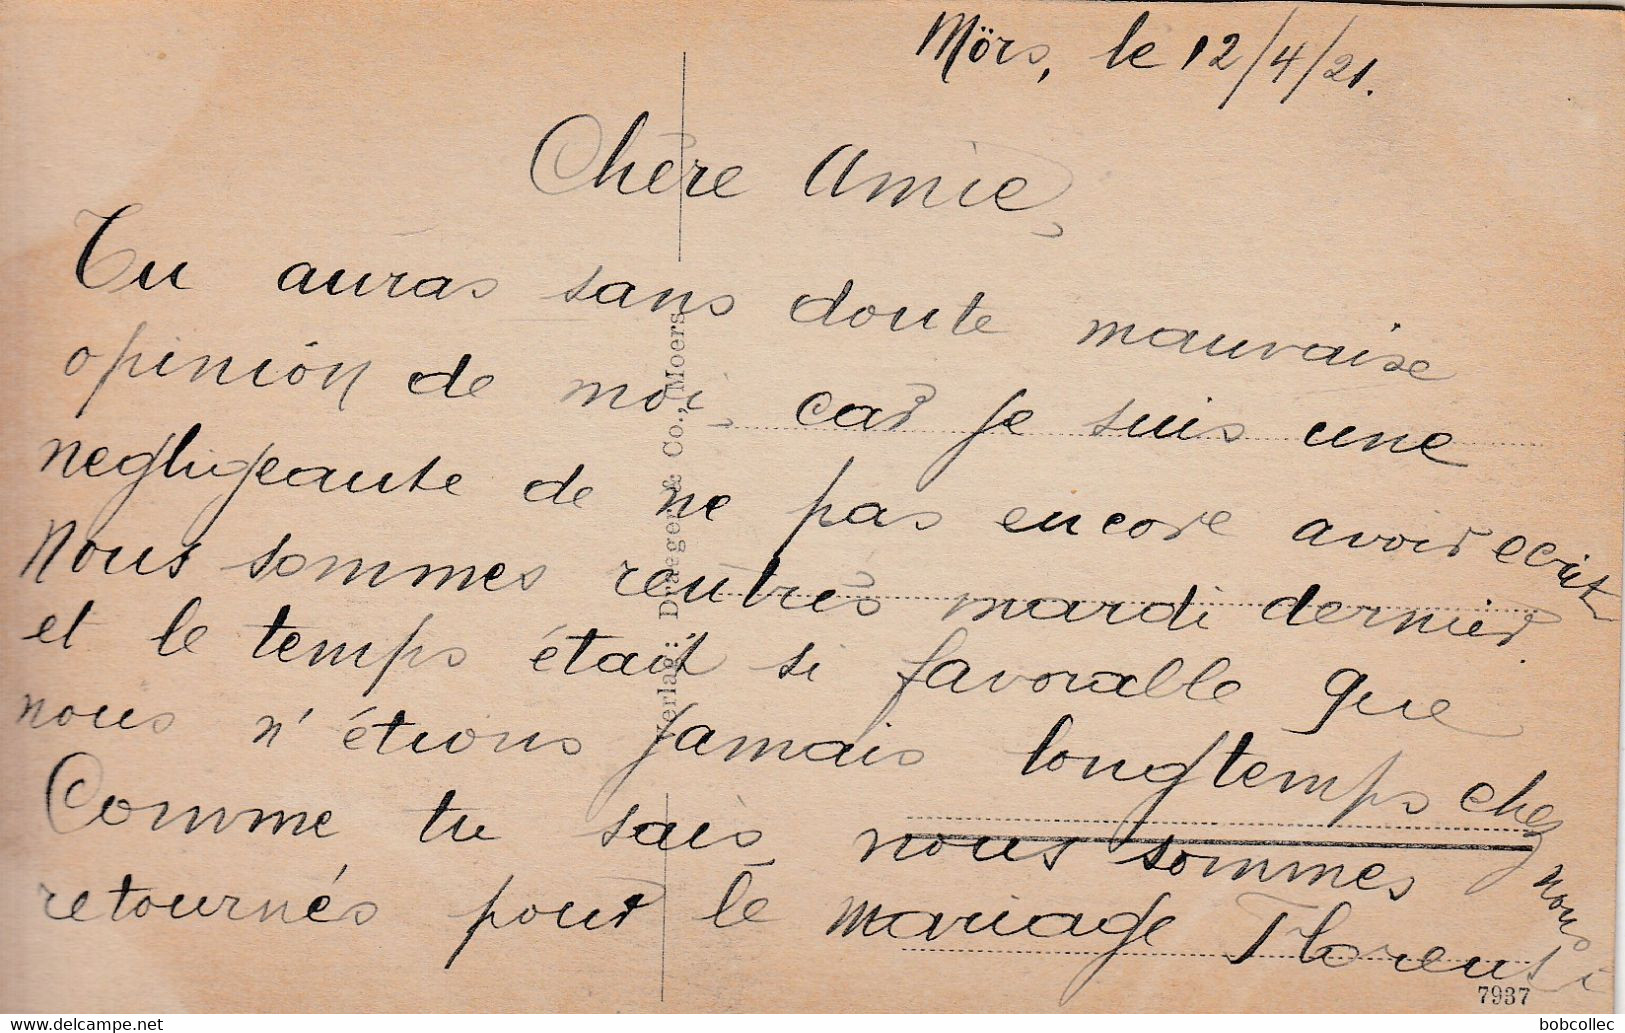 Mörs, le 12/4/21.
Chère Amie,
Tu auras sans doute mauvaise
opinion de moi, car je suis une
negligeante de ne pas encore avoir ecrit
Nous sommes rentrés mardi dernier.
et le temps était si favorable que
nous n'étions jamais longtemps chez nous
Comme tu sais nous sommes
retournés pour le mariage Florent
Verlag: Draeger & Co., Moers.
7937
bobcollec